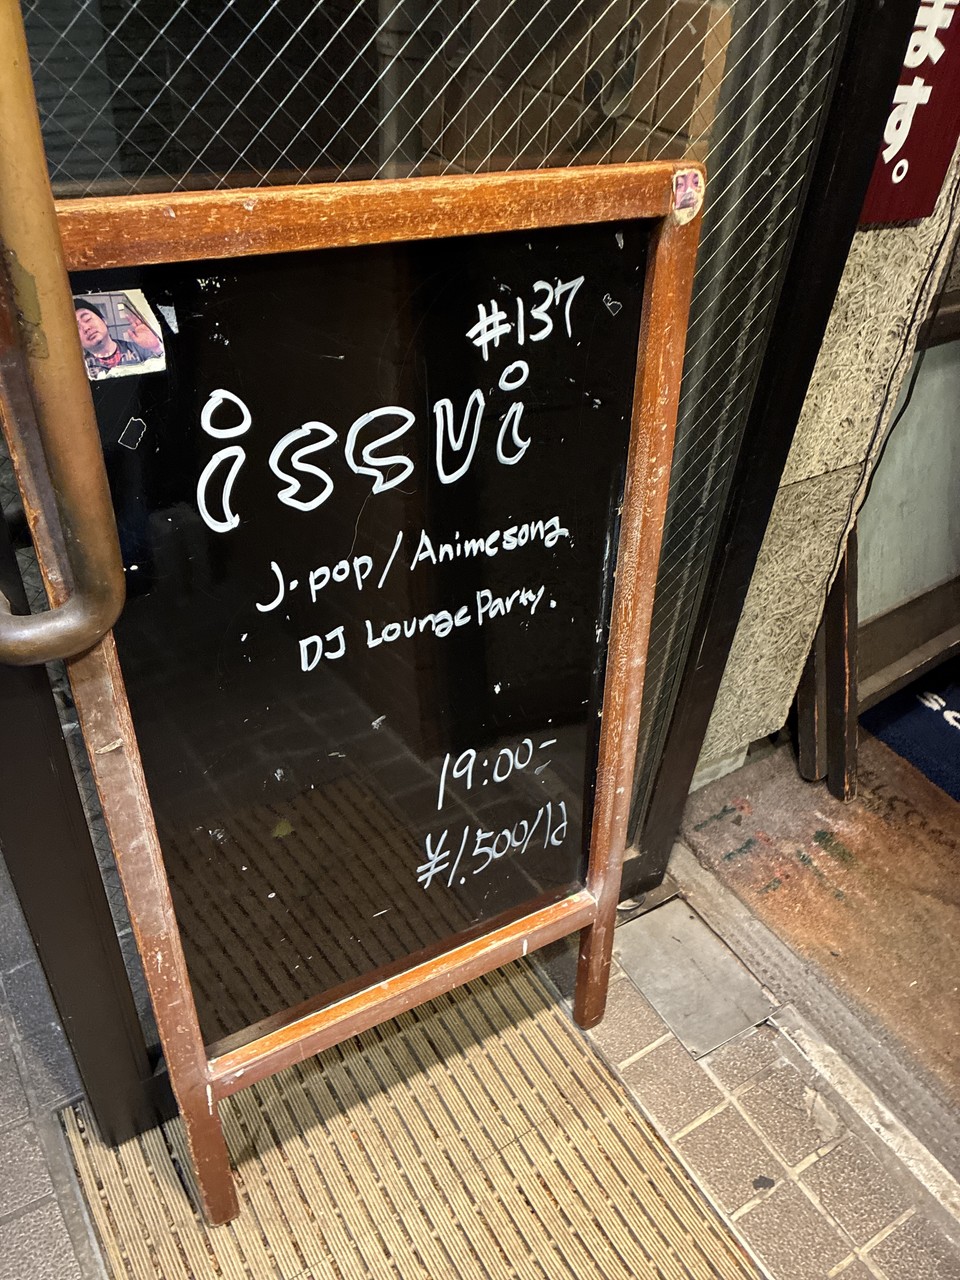 ます。
#137
issui
J-pop/Animesong
DJ Lounge Party.
19:00-
¥1.500/1d